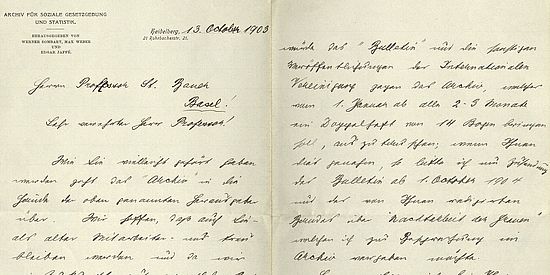 ARCHIV FÜR SOZIALE GESETZGEBUNG
UND STATISTIK.
HERAUSGEGEBEN VON
WERNER SOMBART, MAX WEBER
UND
EDGAR JAFFÉ.
Heidelberg, 13. October 1903
21 Rohrbacherstr. 21.
Herrn Professor St. Bauer
Basel!
Sehr verehrter Herr Professor!
Wie Sie vielleicht gehört haben
werden geht das "Archiv" in die
Hände der oben genannten Herausgeber
über. Wir hoffen, daß auch Sie
als alter Mitarbeiter uns treu
bleiben werden und da wir
würde das "Bulletin" und die sonstigen
Veröffentlichungen der Internationalen
Vereinigung gegen das Archiv, welches
vom 1. Januar ab alle 2-3 Monate
ein Doppelheft von 14 Bogen bringen
soll, auszutauschen; wenn Ihnen
das genehm, so bitte ich um Zusendung
des Bulletin ab 1. October 1904
und der von Ihnen
Bandes über "Nachtarbeit der Frauen"
welchen ich zur Besprechung im
Archiv vergeben möchte.